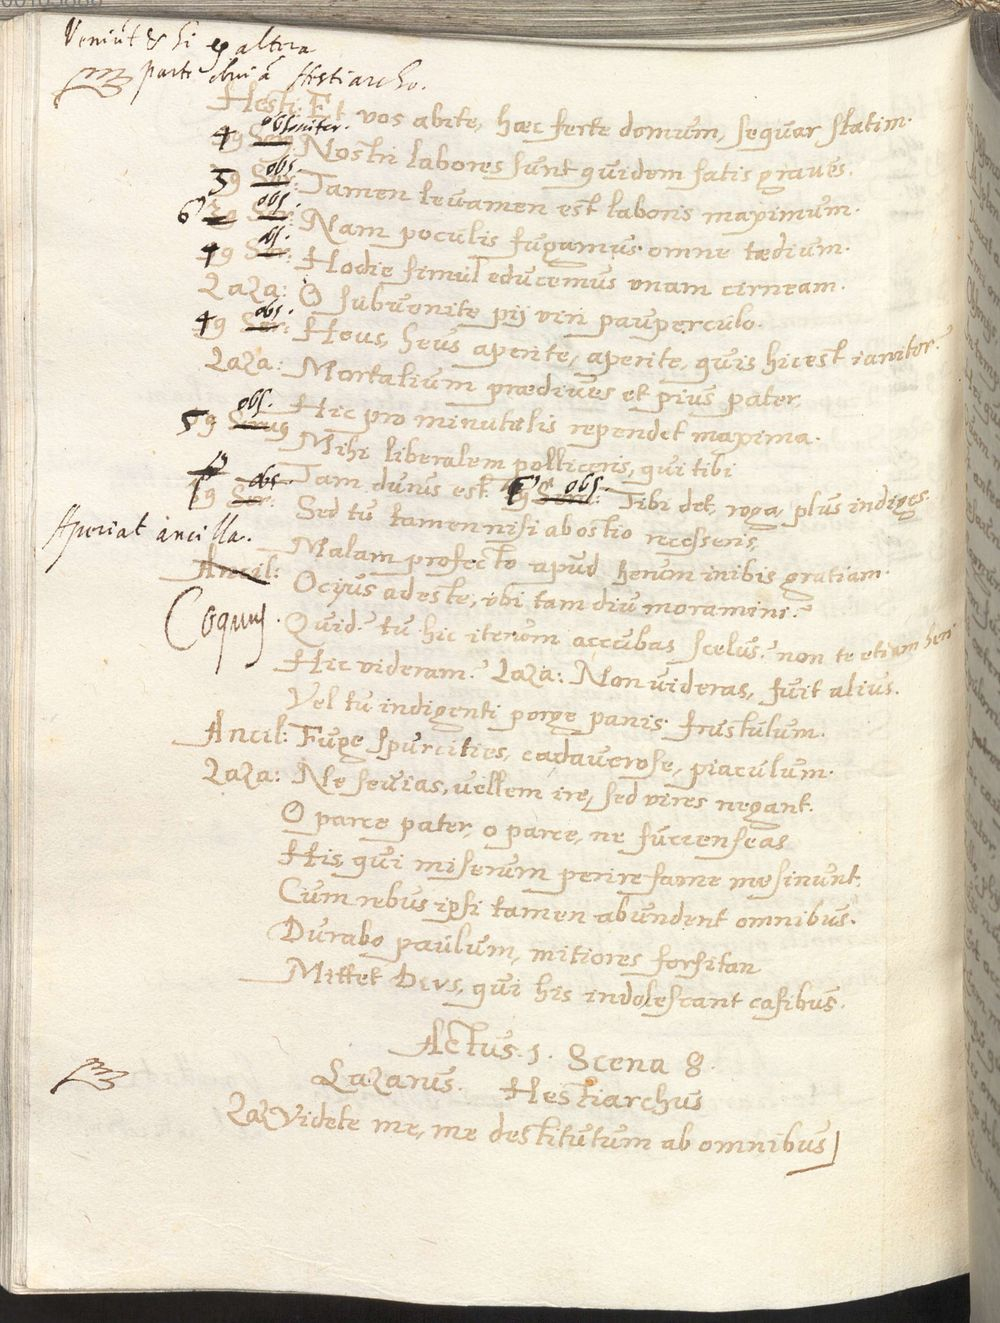 Veniũt & hi ex altera
parte obuiã Hestiarcho.
Hesti: Et vos abite, hæc ferte domum, sequar statim.
4 9 Ser: obsoniter. Nostri labores sunt quidem satis graues.
5 9 Ser: obs. Tamen leuamen est laboris maximum.
6 9 Ser: obs. Nam poculis fugamus omne tædium.
4 9 Ser: obs. Hodie simul educemus vnam cirneam.
Laza: O subuenite pij viri pauperculo.
4 9 Ser: obs. Heus, heus aperite, aperite, quis hic est ianitor?
Laza: Mortalium prædiues et pius pater
Hic pro minutulis rependet maxima.
5 9 Seruus obs. Mihi liberalem polliceris, qui tibi
Tam durus est. 6 9 Serui: obs. Tibi det, roga, plus indiges.
1 9 Ser: obs. Sed tu tamen nisi ab ostio recesseris,
Malam profecto apud herum inibis gratiam.
Aperiat ancilla.
Ancil: Ocyus adeste, vbi tam diu moramini?
Coquus. Quid? tu hic iterum accubas scelus? non te etiam heri
Hic videram? Laza: Non videras, fuit alius.
Vel tu indigenti porge panis frustulum.
Ancil: Fuge spurcities, cadauerose, piaculum.
Laza: Ne seuias, vellem ire, sed vires negant.
O parce pater, o parce, ne succenseas
His, qui miserum perire fame me sinunt,
Cum rebus ipsi tamen abundent omnibus.
Durabo paulum, mitiores forsitan
Mittet Deus, qui his indolescant casibus.
Actus. 1. Scena 8.
Lazarus. Hestiarchus
Laz Videte me, me destitutum ab omnibus